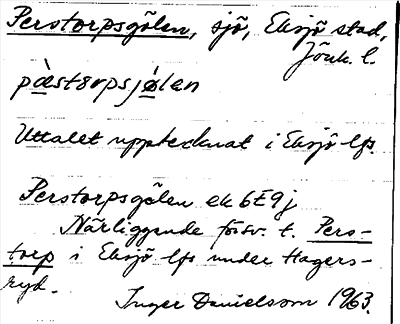 Perstorpsgölen, sjö, Eksjö stad,
Jönk. l.
pàstorpsjǿlen
Uttalet upptecknat i Eksjö lfs.
Perstorpsgölen ek 6E9j
Närliggande förv. t. Pers-
torp i Eksjö lfs under Hagers-
ryd.
Inger Danielsson 1963.